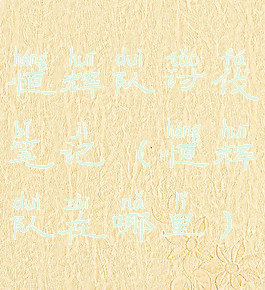 héng huī duì tǎo fá
恒辉队讨伐
bǐ jì héng huī
笔记(恒辉
duì zài nǎ lǐ
队在哪里)